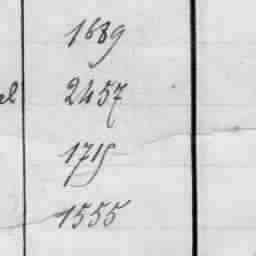 1689
el 2457
1715
1555